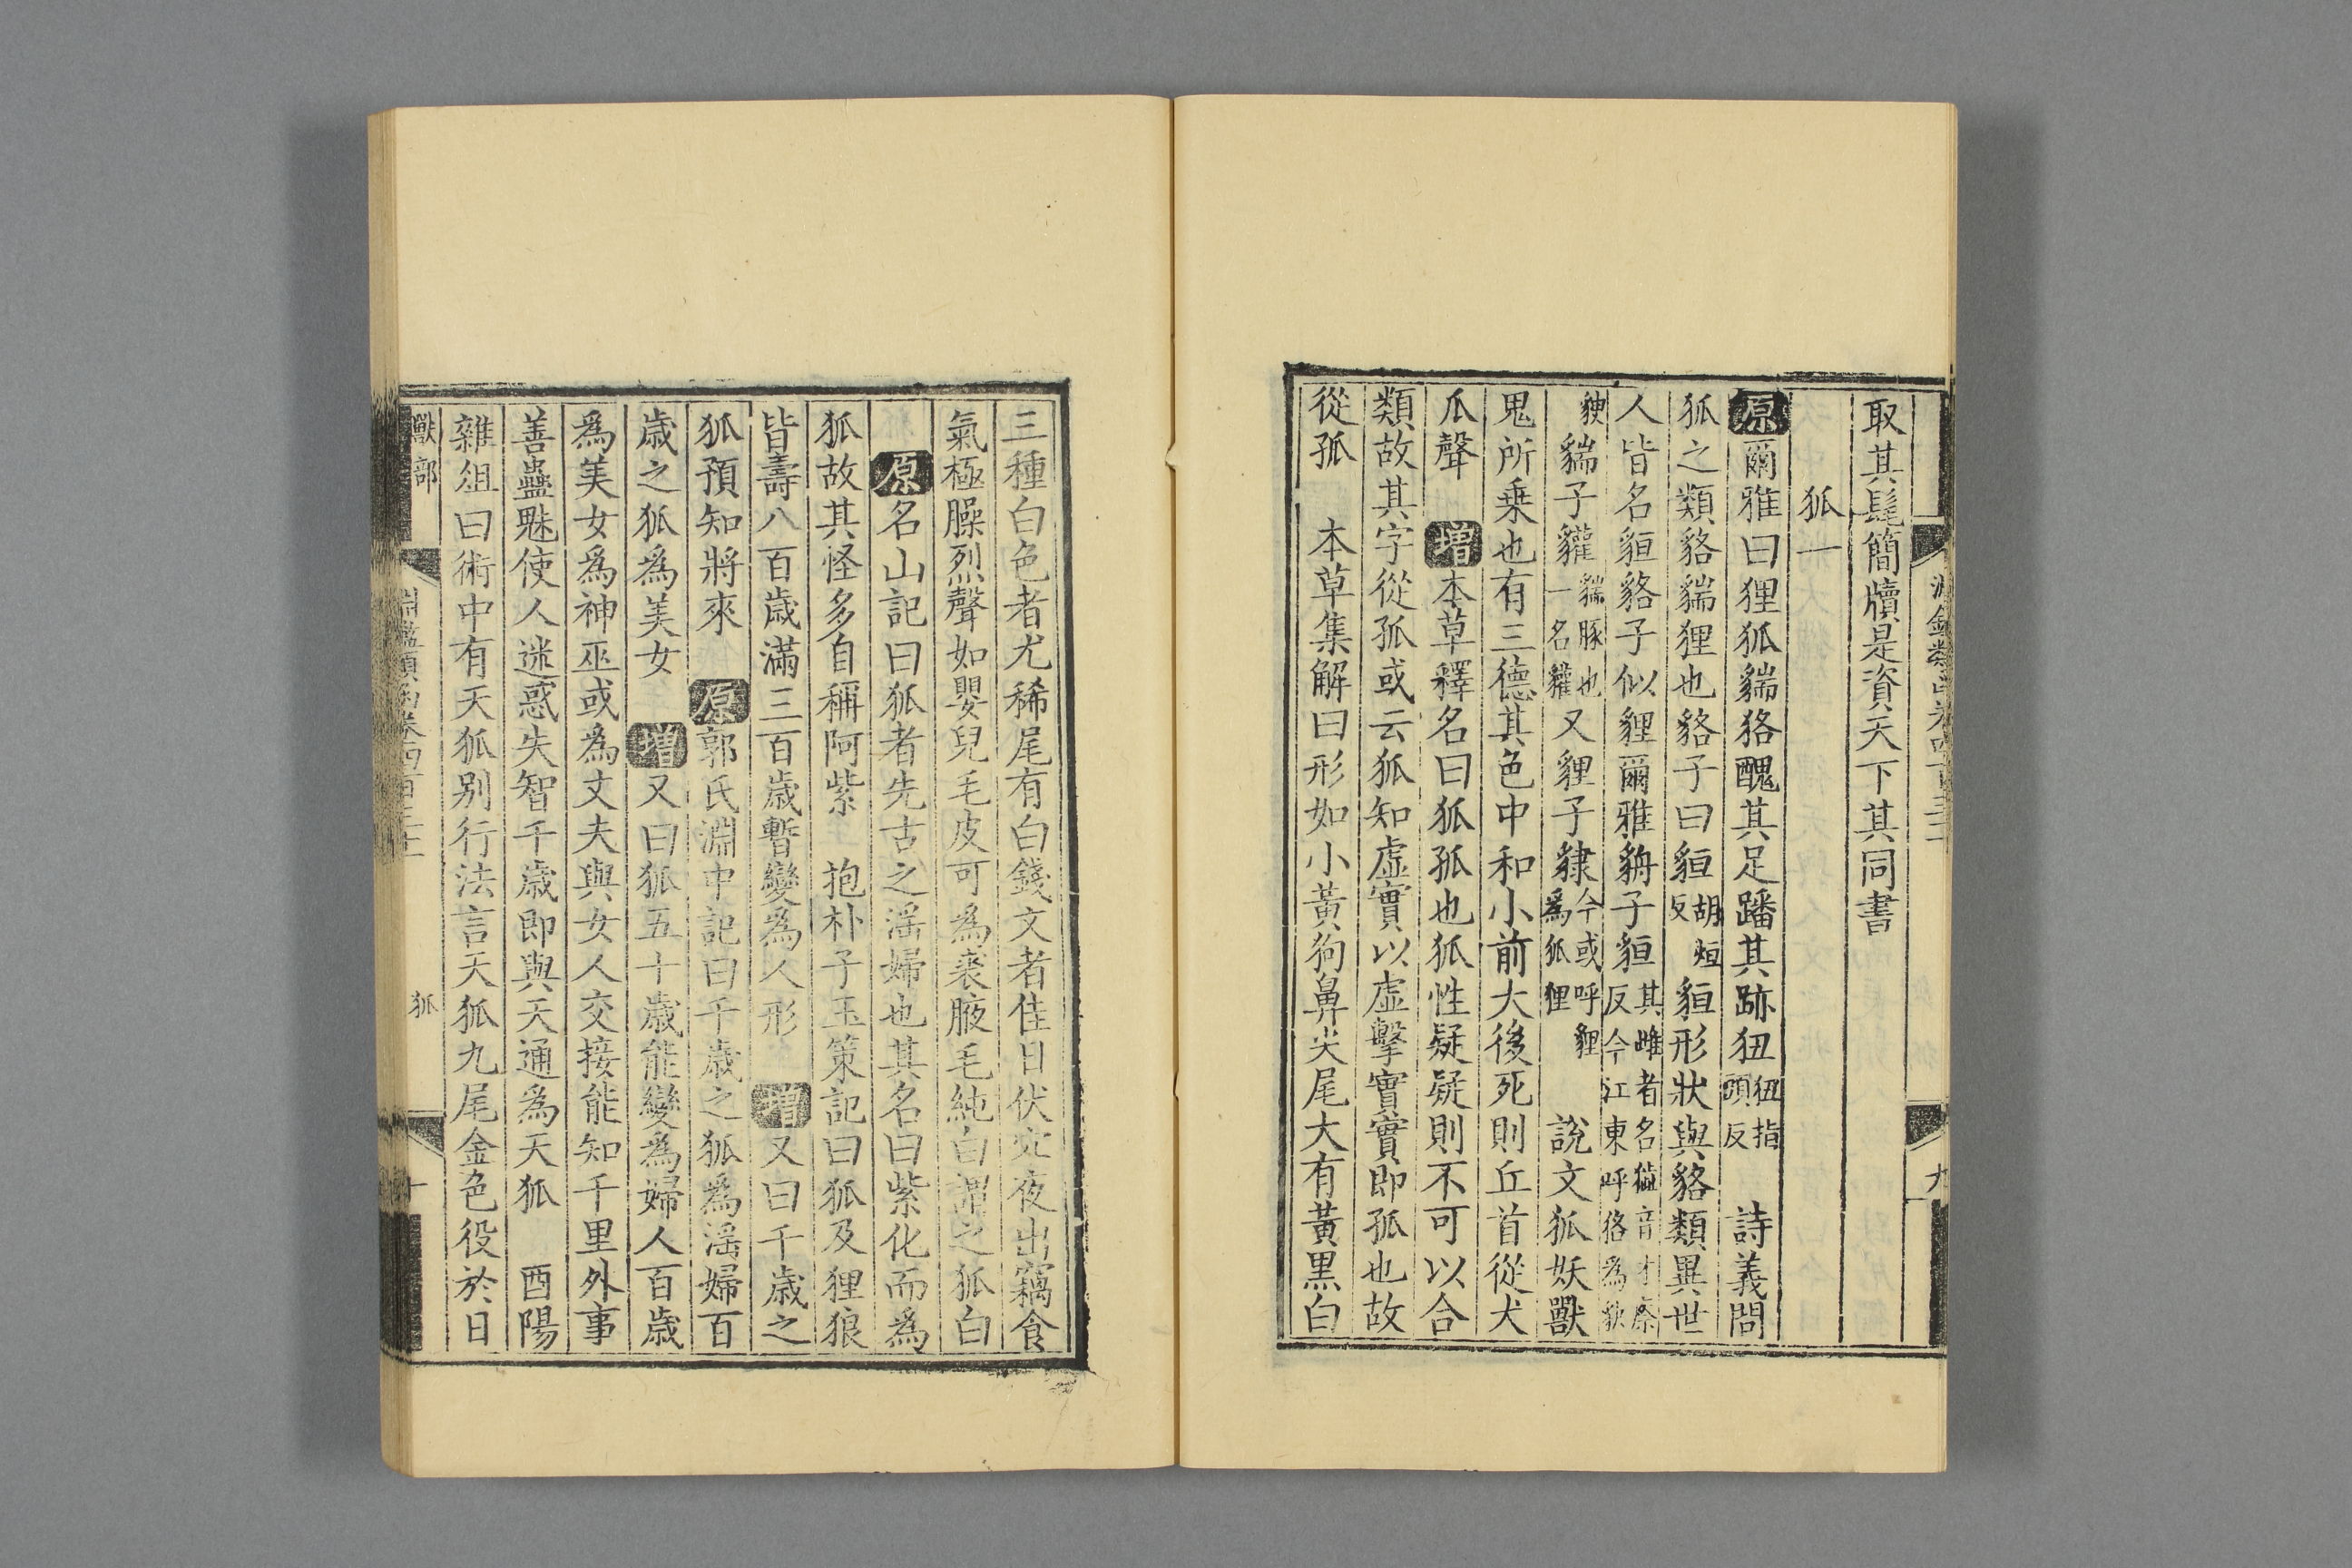 取其髦簡牘是資天下其同書
狐一
原爾雅曰狸狐貒狢醜其足蹯其跡狃狃指頭反 詩義問
狐之類貉貒狸也貉子曰貆胡烜反貆形狀與貉類異世
人皆名貆貉子似貍爾雅貈子貆其雌者名㺉音才奈反今江東呼狢為㺄
貒子貛貒豚也一名貛又貍子貄今或呼貍為狐狸 說文狐妖獸
鬼所乗也有三德其色中和小前大後死則丘首從犬
瓜聲 增本草釋名曰狐孤也狐性疑疑則不可以合
類故其字從孤或云狐知虛實以虛擊實實即孤也故
從孤 本草集解曰形如小黃狗鼻尖尾大有黃黒白
三種白色者尤稀尾有白錢文者佳日伏穴夜出竊食
氣極臊烈聲如嬰兒毛皮可為裘腋毛純白謂之狐白
原名山記曰狐者先古之滛婦也其名曰紫化而為
狐故其怪多自稱阿紫 抱朴子玉策記曰狐及狸狼
皆壽八百歲滿三百歲暫變為人形 增又曰千歲之
狐預知將來 原郭氏淵中記曰千歲之狐為滛婦百
歲之狐為美女 增又曰狐五十歲能變為婦人百歲
為美女為神巫或為丈夫與女人交接能知千里外事
善蠱魅使人迷惑失智千歲即與天通為天狐 酉陽
雜俎曰術中有天狐別行法言天狐九尾金色役於日
獸部
淵鑑類函卷四百三十一
狐
十